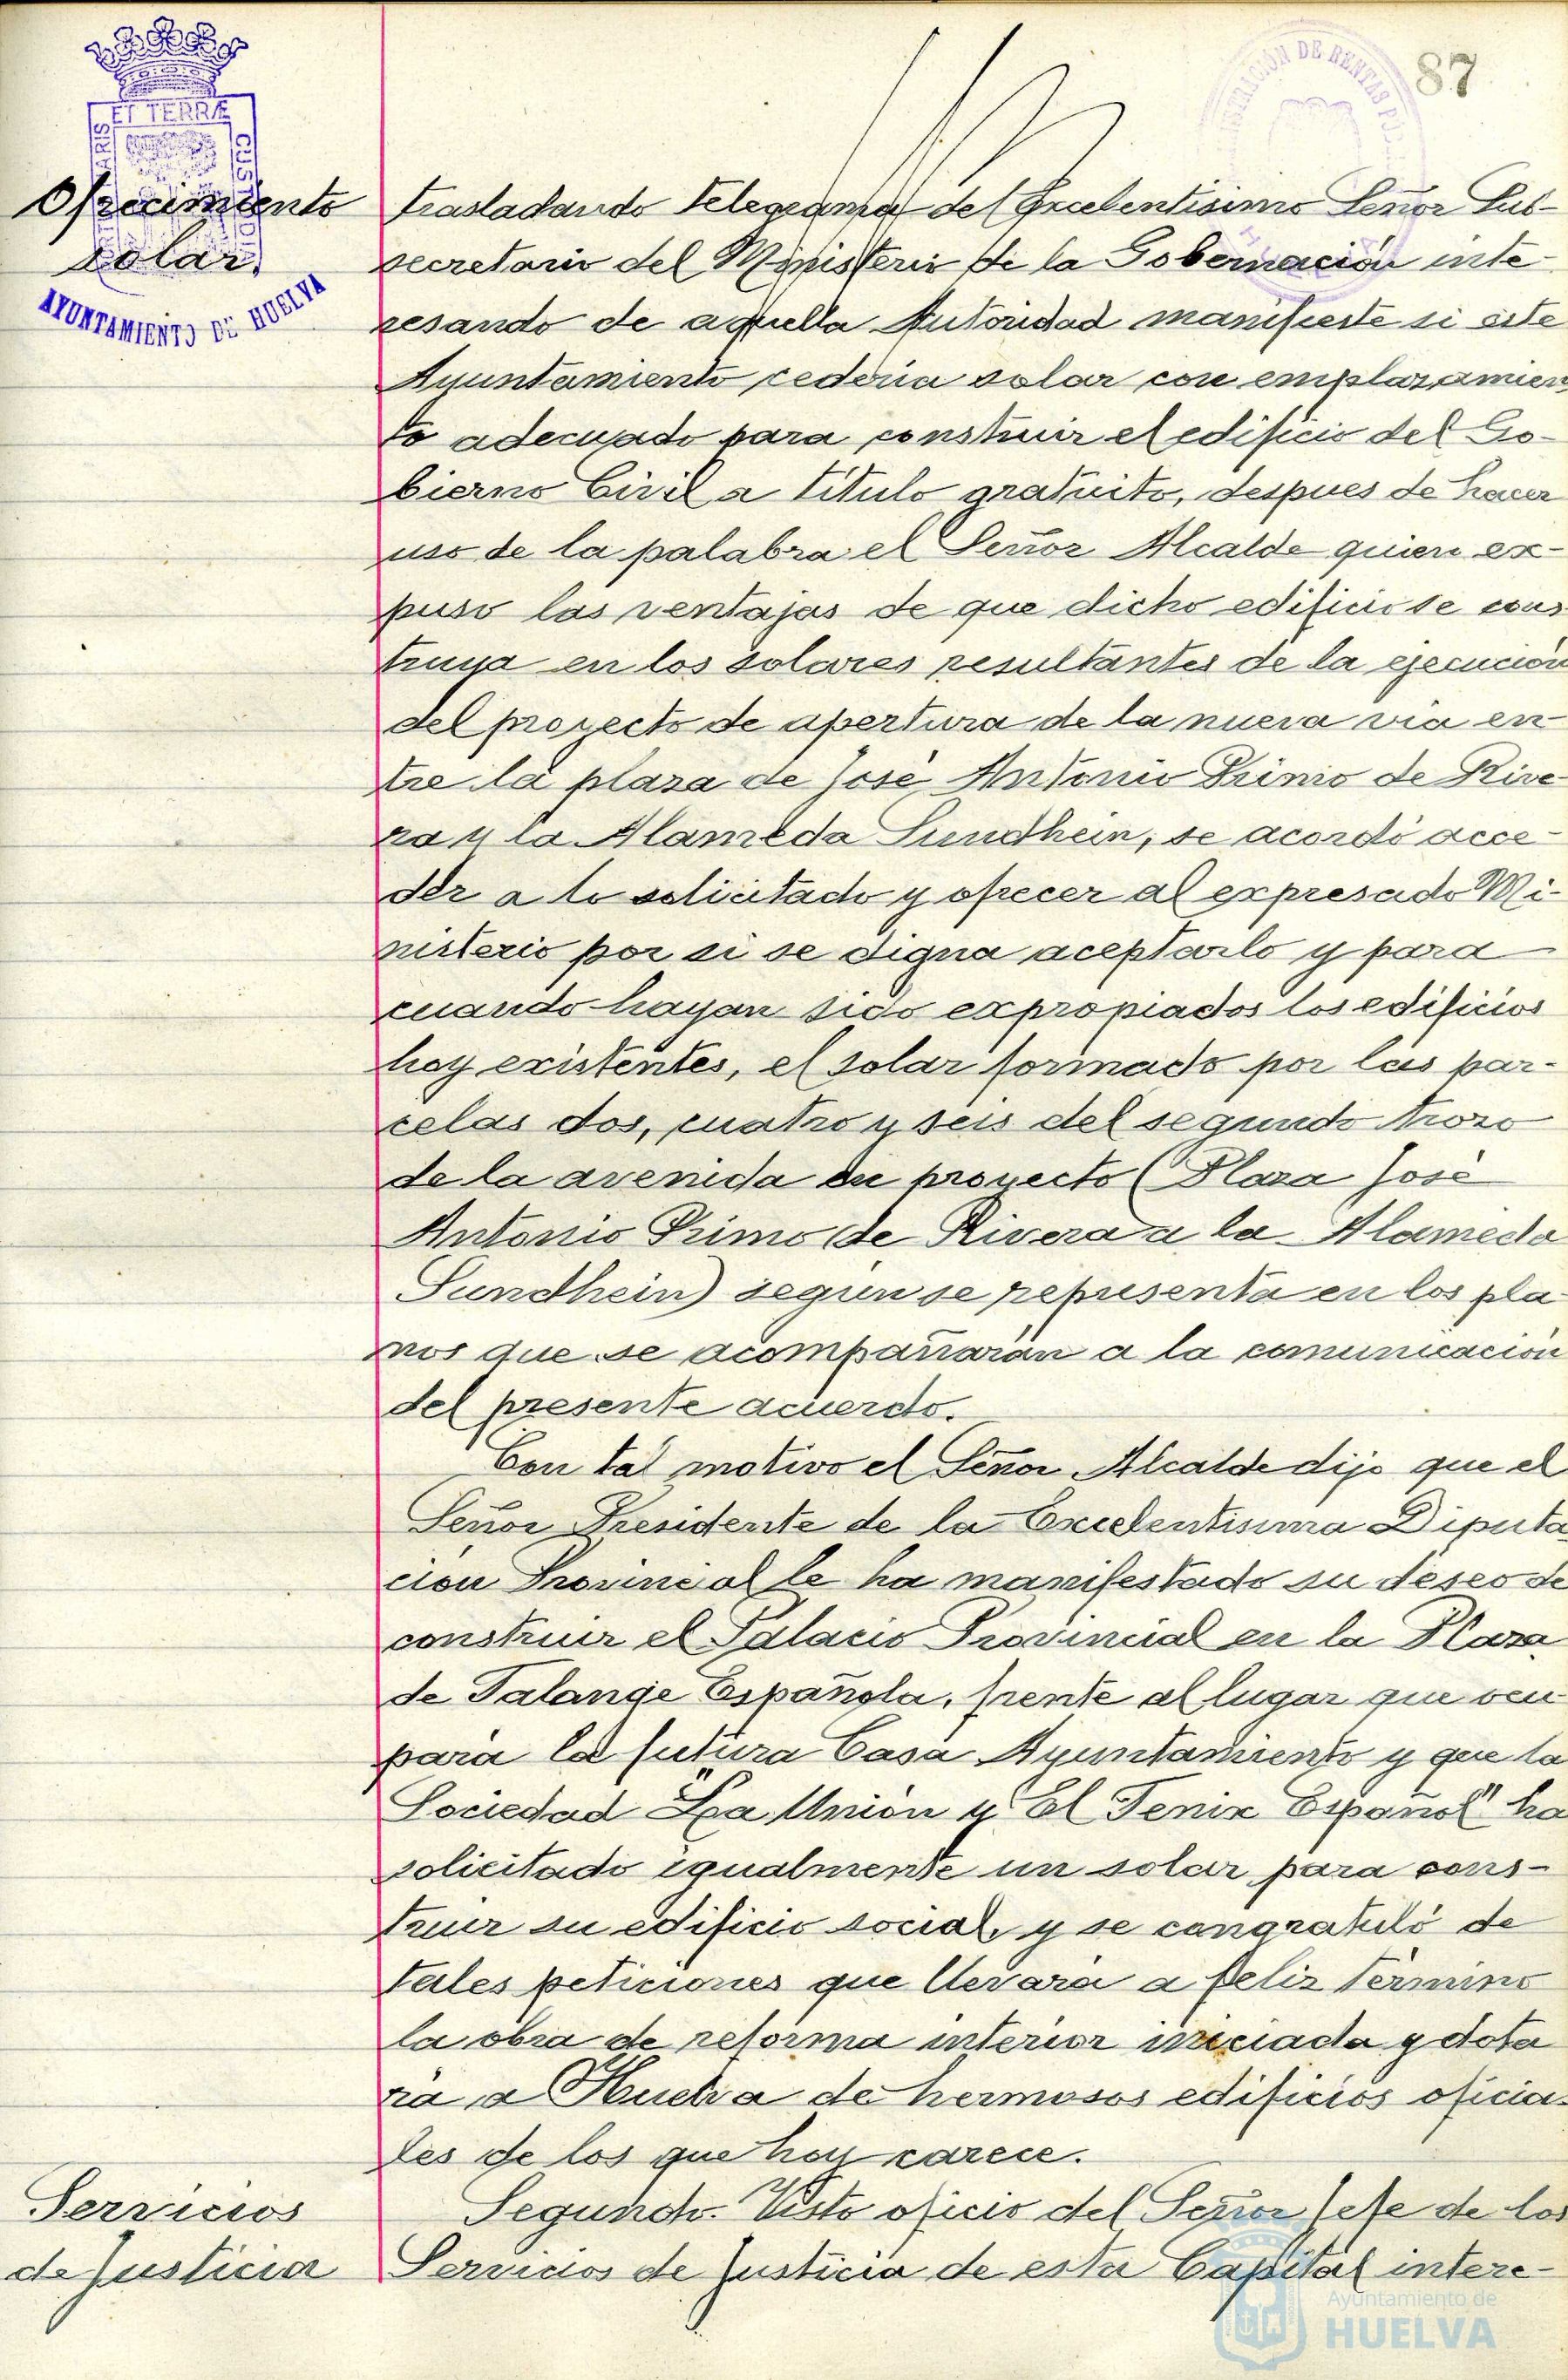 87
ET TERRÆ
Ofrecimiento
solar.
AYUNTAMIENTO DE HUELVA
trasladando telegrama del Excelentisimo Señor Sub-
secretario del Ministerio de la Gobernación inte-
resando de aquella Autoridad manifieste si este
Ayuntamiento cederia solar con emplazamien
to adecuado para construir el edificio del Go-
bierno Civil a titulo gratuito, despues de hacer
uso de la palabra el Señor Alcalde quien ex-
puso las ventajas de que dicho edificio se cons
truya en los solares resultantes de la ejecución
del proyecto de apertura de la nueva via en-
tre la plaza de José Antonio Primo de Rive-
ra y la Alameda Sundhein, se acordó acce-
der a lo solicitado y ofrecer al expresado Mi-
nisterio por si se digna aceptarlo y para
cuando hayan sido expropiados los edificios
hoy existentes, el solar formado por las par-
celas dos, cuatro y seis del segundo trozo
de la avenida en proyecto (Plaza José
Antonio Primo de Rivera a la Alameda
Sundhein) según se representa en los pla
nos que se acompañarán a la comunicación
del presente acuerdo.
Con tal motivo el Señor Alcalde dijo que el
Señor Presidente de la Excelentisima Diputa
ción Provincial le ha manifestado su deseo de
construir el Palacio Provincial en la Plaza
de Falange Española, frente al lugar que
para la futura Casa Ayuntamiento y que la
Sociedad "La Unión y El Fenix Español" ha
solicitado igualmente un solar para cons-
truir su edificio social, y se congratuló de
tales peticiones que llevará a feliz término
la obra de reforma interior iniciada y dota
rá a Huelva de hermosos edificios oficia-
les de los que hoy carece.
Servicios
de Justicia
Segundo. Visto oficio del Señor Jefe de los
Servicios de Justicia de esta Capital intere-
Ayuntamiento de
HUELVA